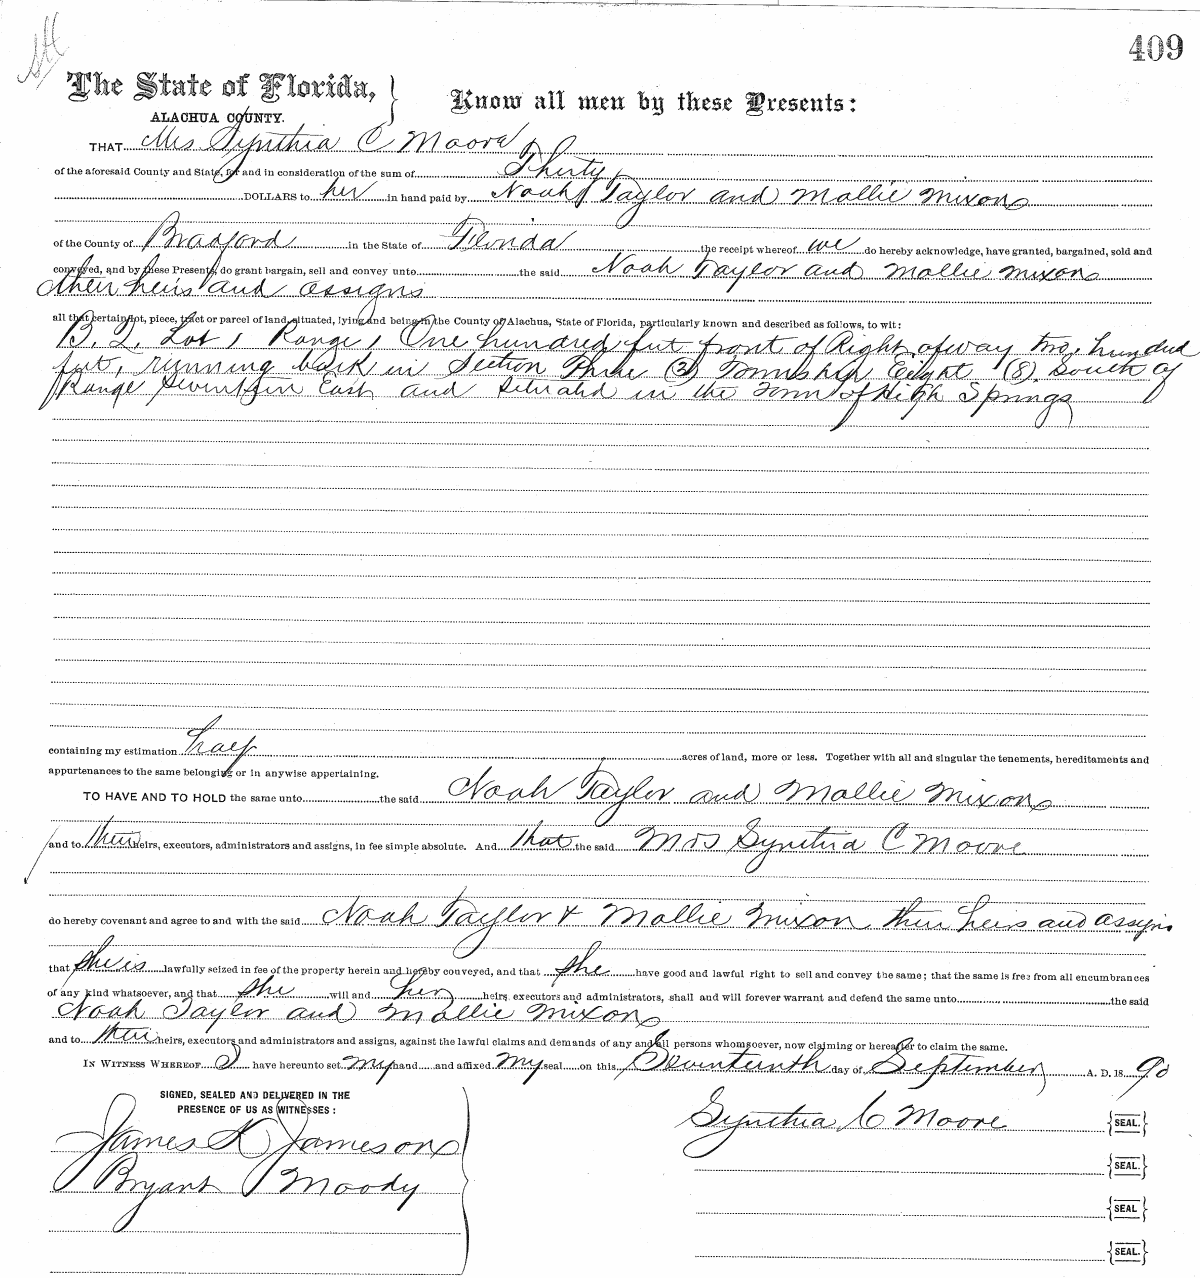 409
The State of Florida,
ALACHUA COUNTY.
Know all men by these Presents:
THAT Mrs Synthia C Moore
of the aforesaid County and State, for and in consideration of the sum of Thirty
DOLLARS to her in hand paid by Noah Taylor and Mollie Mixons
of the County of Bradford in the State of Florida the receipt whereof we do hereby acknowledge, have granted, bargained, sold and
conveyed, and by these Presents, do grant bargain, sell and convey unto the said Noah Taylor and Mollie Mixons
their heirs and assigns
all that certain lot, piece, tract or parcel of land, situated, lying and being in the County of Alachua, State of Florida, particularly known and described as follows, to wit:
B. 2. Lot 1 Range 1 One hundred feet front of Right of way two hundred
feet, running back in Section Three (3) Township Eight (8) South of
Range Seventeen East and situated in the Town of High Springs
containing my estimation half acres of land, more or less. Together with all and singular the tenements, hereditaments and
appurtenances to the same belonging or in anywise appertaining.
TO HAVE AND TO HOLD the same unto the said Noah Taylor and Mollie Mixons
and to their heirs, executors, administrators and assigns, in fee simple absolute. And that the said Mrs Synthia C Moore
do hereby covenant and agree to and with the said Noah Taylor & Mollie Mixon their heirs and assigns
that she is lawfully seized in fee of the property herein and hereby conveyed, and that she have good and lawful right to sell and convey the same; that the same is free from all encumbrances
of any kind whatsoever, and that she will and her heirs executors and administrators, shall and will forever warrant and defend the same unto the said
Noah Taylor and Mollie Mixons
and to their heirs, executors and administrators and assigns, against the lawful claims and demands of any and all persons whomsoever, now claiming or hereafter to claim the same.
IN WITNESS WHEREOF I have hereunto set my hand and affixed my seal on this Seventeenth day of September A. D. 18 90
SIGNED, SEALED AND DELIVERED IN THE
PRESENCE OF US AS WITNESSES:
James K Jameson
Bryant Moody
Synthia C Moore SEAL.
SEAL.
SEAL
SEAL.